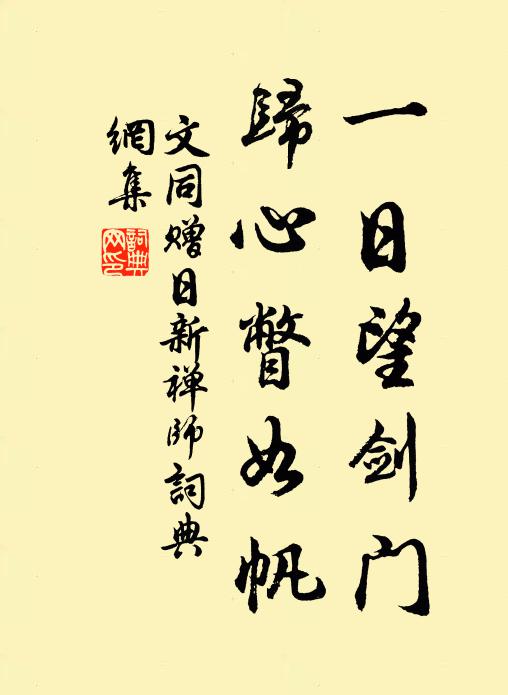 一日望剑门
歸心瞥如帆
文同赠日新禅师詞典
網集
詞典
网印